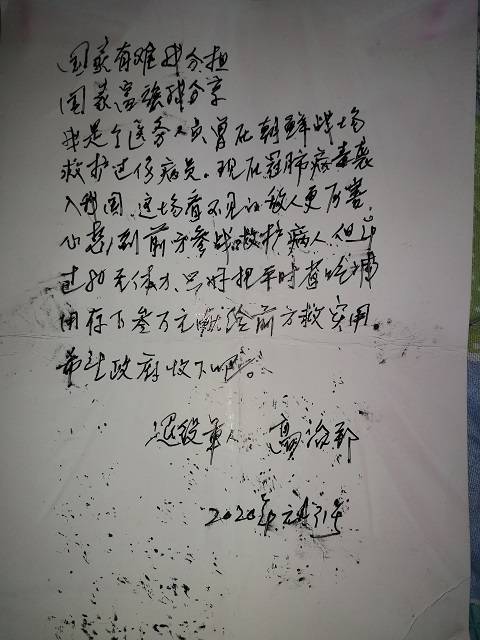 国家有难我分担
国家富强我分享
我是个医务人员曾在朝鲜战场
救护过伤病员。现在冠肺病毒袭
入我国,这场看不见的敌人更厉害,
心想到前方参战救护病人,但年
过80无体力,只好把平时省吃
用存下叁万元献给前方救灾用,
希望政府收下吧。
退役军人 高治郅
2020年元月31号